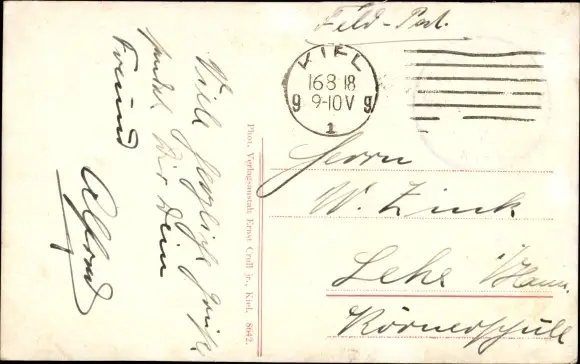 Feld-Post.
KIEL
16 8 18
9 9-10 V 9
1
Viele herzliche Grüße
sendet Dir Dein
Freund
Alfred
Phot. Verlagsanstalt Ernst Crull jr., Kiel. 8642.
Herrn
W. Zink
Lehe
Körnerschule